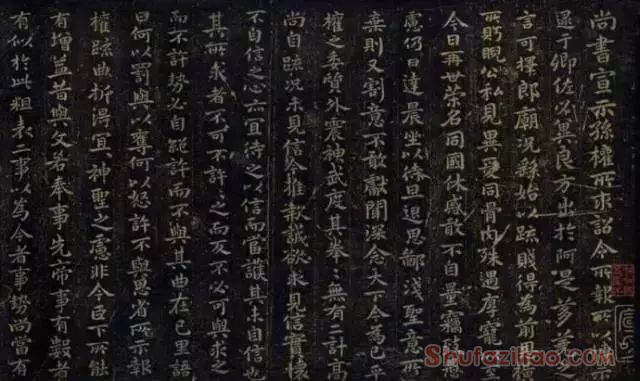 尚書宣示孫權所求詔令所報所以博
逮于卿佐必冀良方出於阿是芻蕘
言可擇郎廟況繇始以疏賤得為前恩
所眄睨公私見異愛同骨肉殊遇厚寵
今日再世榮名同國休慼敢不自量竊致愚
慮仍日達晨坐以待旦退思鄙淺聖意所
棄則又割意不敢獻聞深念天下今為已平
權之委質外震神武度其拳〻無有二計高
尚自疏況未見信今推款誠欲求見信實懷
不自信之心亦宜待之以信而當護其未自信也
其所求者不可不許許之而反不必可與求之
而不許勢必自絕許而不與其曲在己里語
曰何以罰與以奪何以怒許不與思省所示報
權疏曲折得宜宜神聖之慮非今臣下所能
有增益昔與文若奉事先帝事有數者
有似於此粗表二事以為今者事勢尚當有
Shufaziliao.com